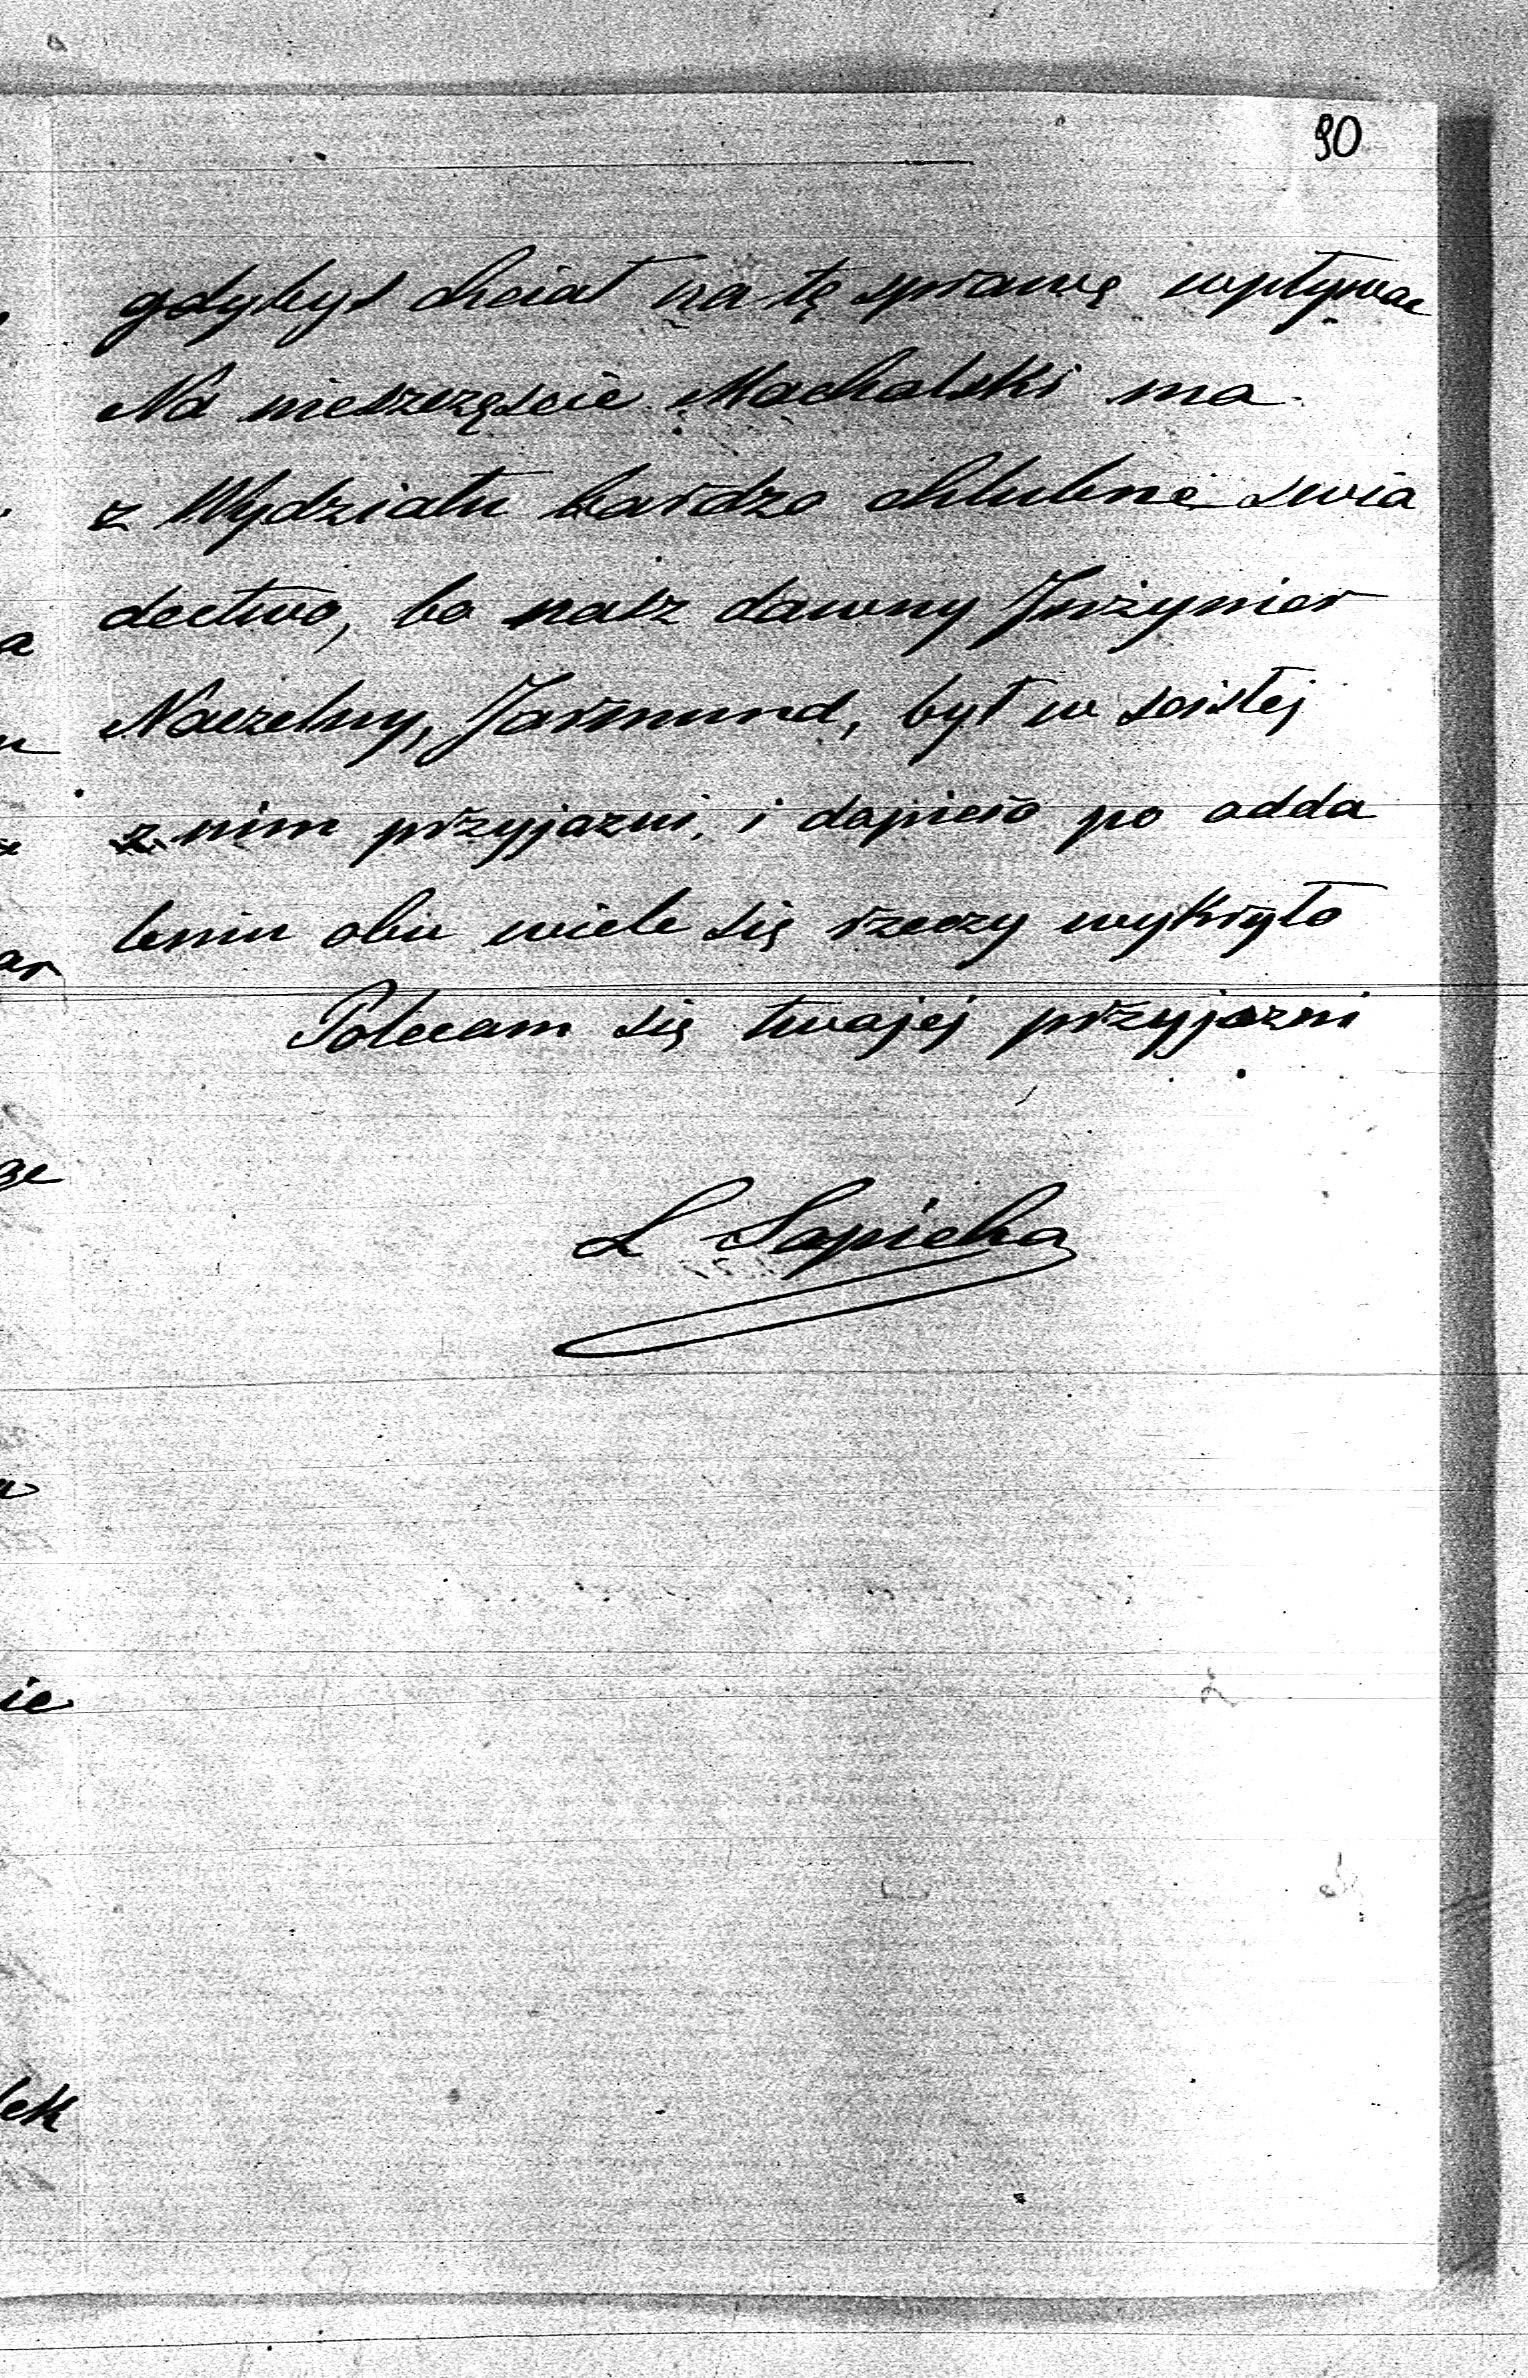 90
gdybyś chciał na tę sprawę wpływac
Na nieszczęscie Machalski ma
z Wydziału bardzo chlubne swia
dectwo, bo nasz dawny Inżynier
Naczelny, Jarmund, był w scisłej
z nim przyjazni, i dopiero po odda
leniu obu wiele się rzeczy wykryło
Polecam się twojej przyjazni
L Sapieha